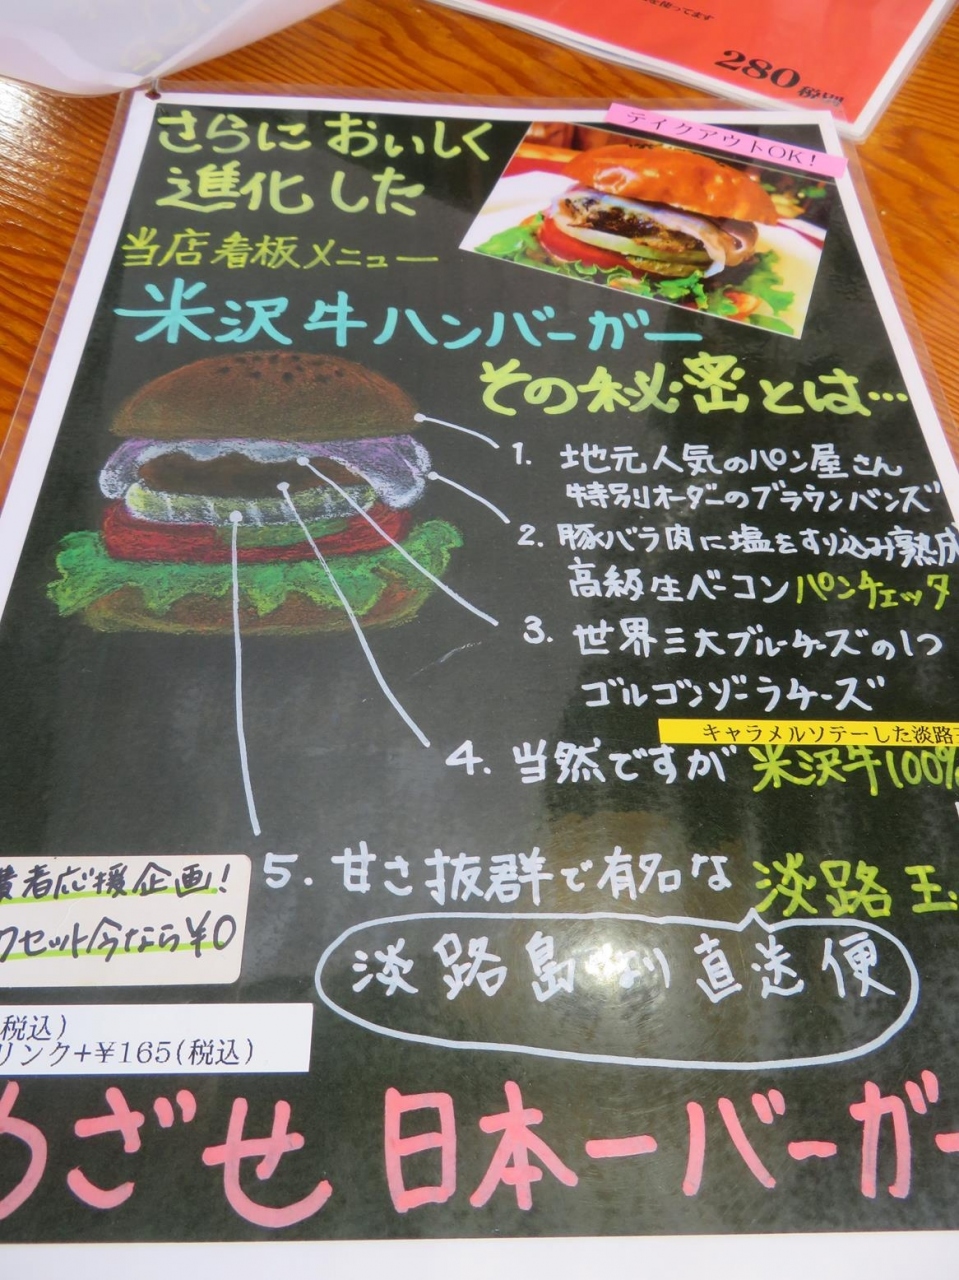 を使ってます
280税別
テイクアウトOK!
さらにおいしく
進化した
当店看板メニュー
米沢牛ハンバーガー
その秘密とは…
1. 地元人気のパン屋さん
特別オーダーのブラウンバンズ
2. 豚バラ肉に塩をすり込み熟成
高級生ベーコンパンチェッタ
3. 世界三大ブルーチーズの1つ
ゴルゴンゾーラチーズ
キャラメルソテーした淡路
4. 当然ですが 米沢牛100%
5. 甘さ抜群で有名な 淡路玉
淡路島より直送便
者応援企画!
クセット今なら¥0
(税込)
リンク+¥165(税込)
めざせ 日本一バーガー